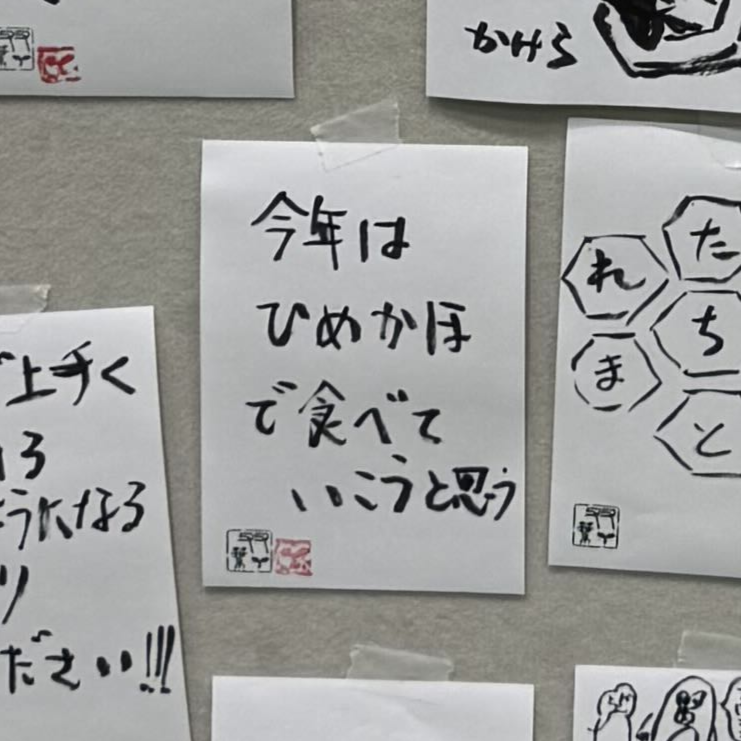 かけら
今年は
ひめかほ
で食べて
いこうと思う
上手く
うになる
ださい!!!
た
れ
ち
ま
と